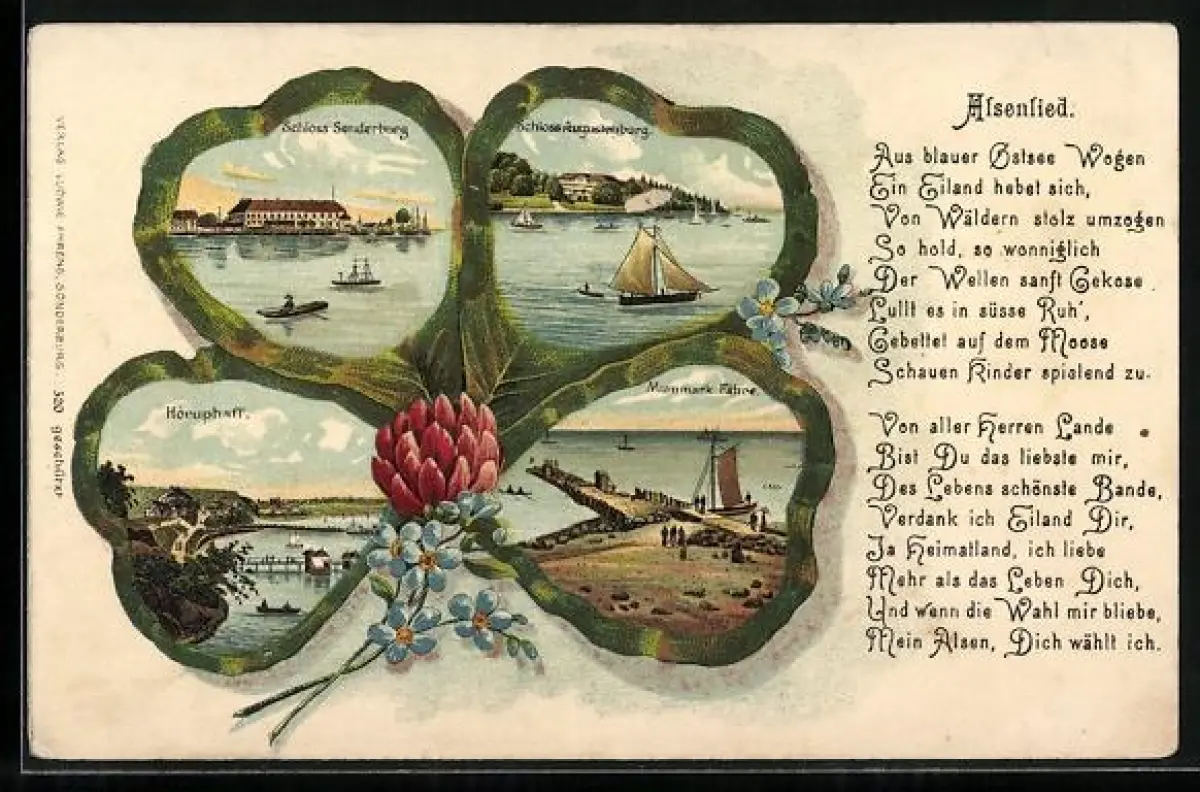 Schloss Sonderburg
Schloss Augustenburg
Höruphaff.
Mummark Fähre.
VERLAG LUDWIG SONDERBURG. 320 geschützt
Alsenlied.
Aus blauer Ostsee Wogen
Ein Eiland hebet sich,
Von Wäldern stolz umzogen
So hold, so wonniglich
Der Wellen sanft Gekose
Lullt es in süsse Ruh',
Gebettet auf dem Moose
Schauen Kinder spielend zu.
Von aller Herren Lande
Bist Du das liebste mir,
Des Lebens schönste Bande,
Verdank ich Eiland Dir,
Ja Heimatland, ich liebe
Mehr als das Leben Dich,
Und wenn die Wahl mir bliebe,
Mein Alsen, Dich wählt ich.